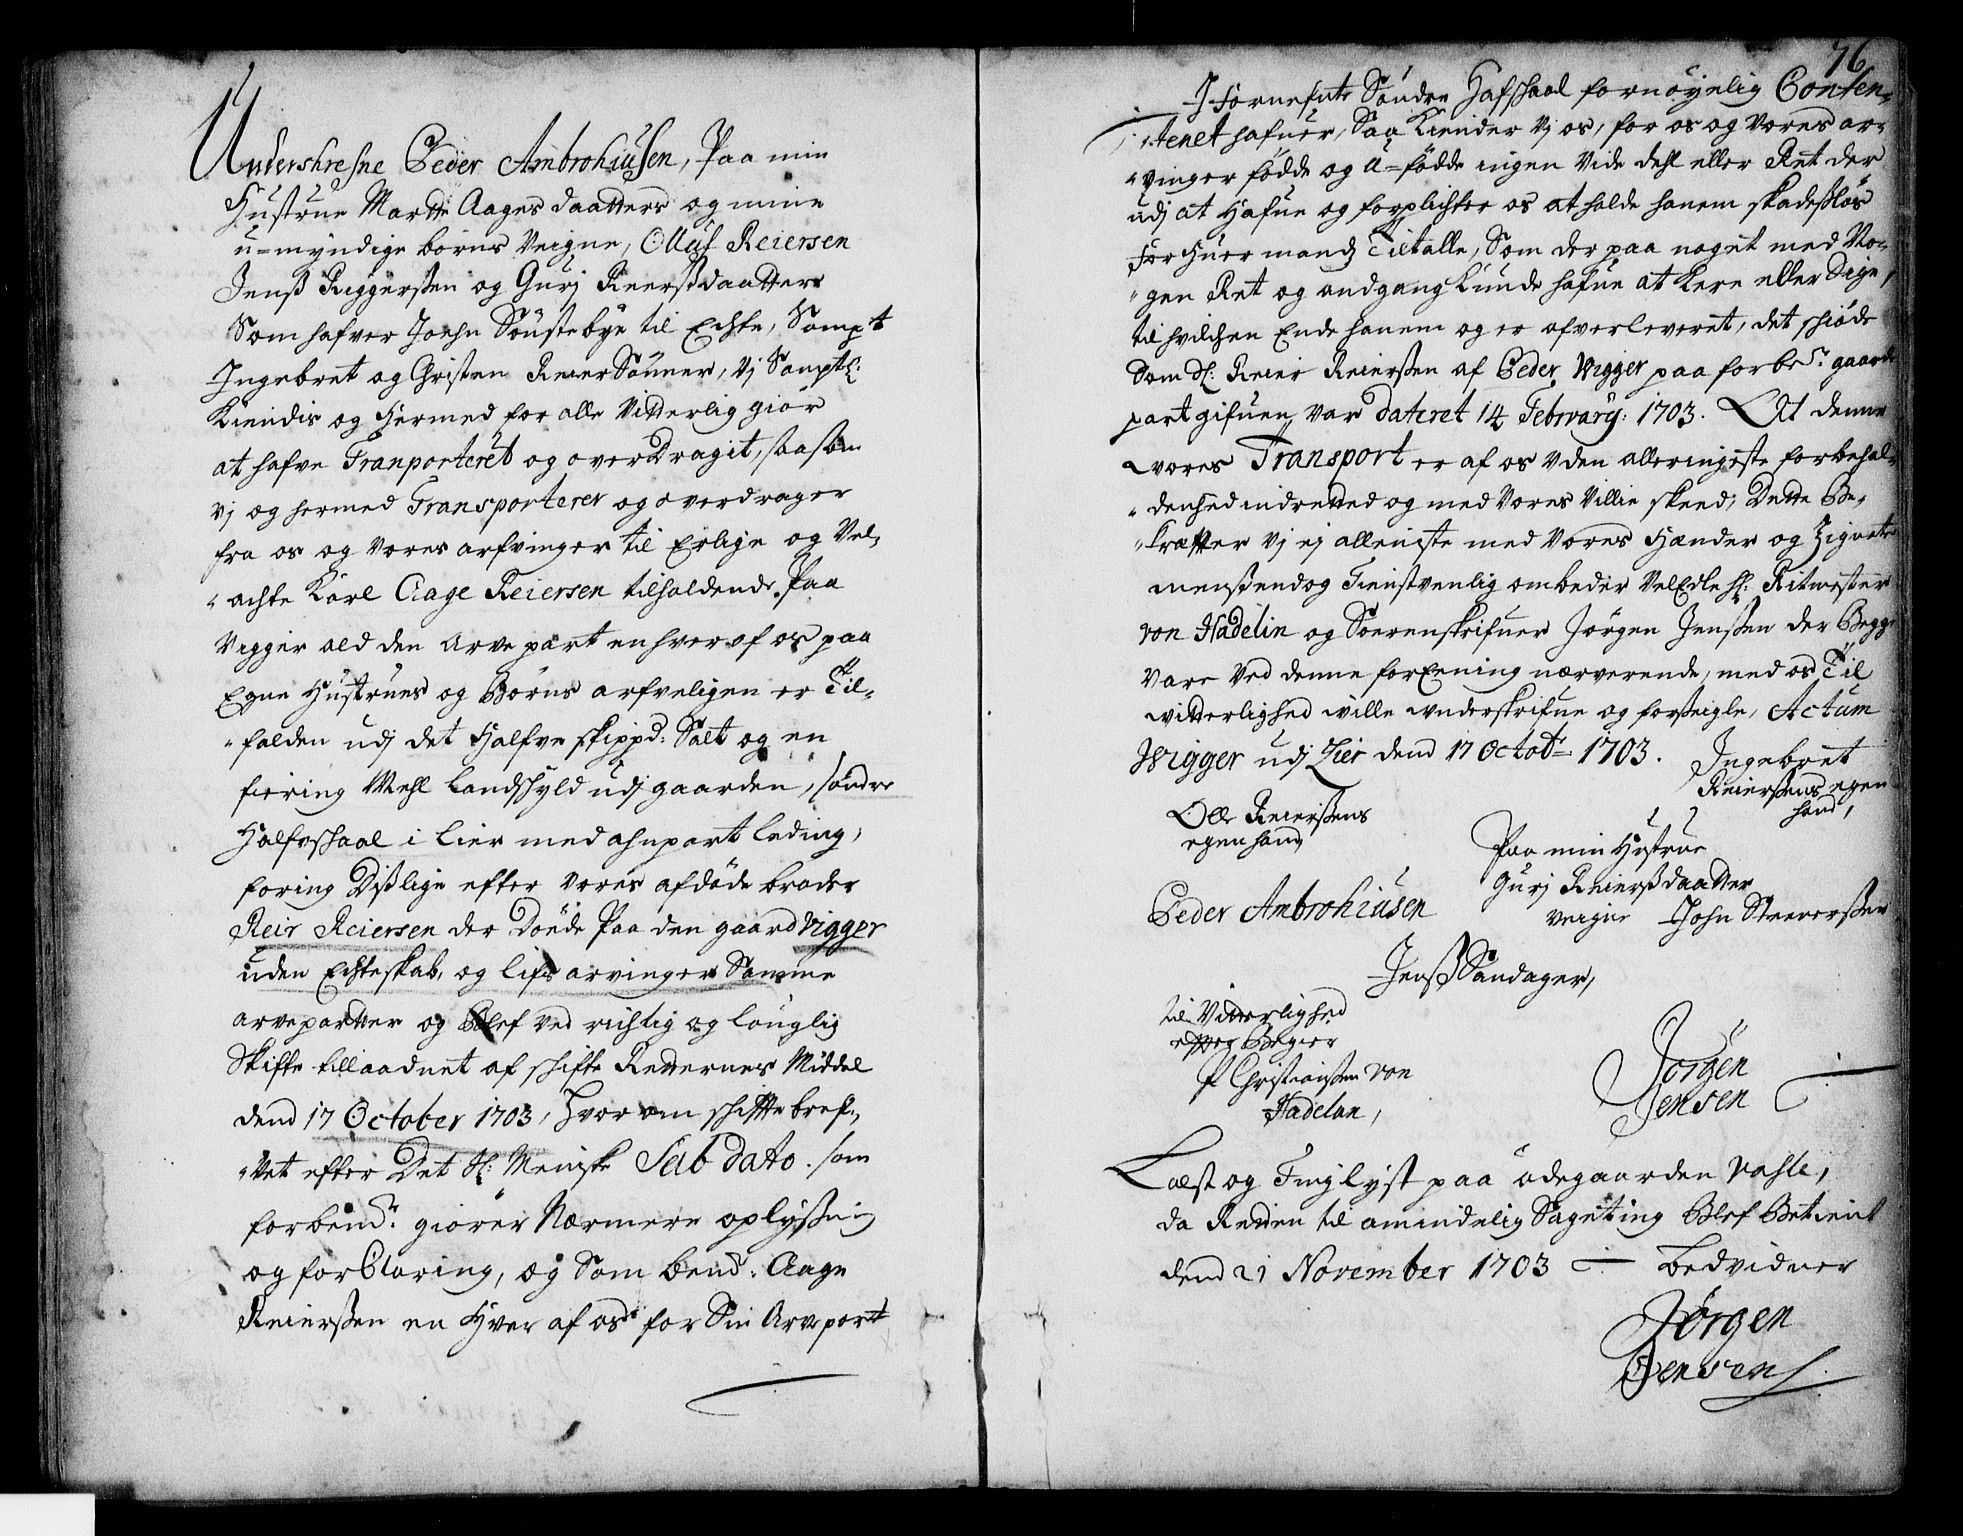 Underskrefne Peder Ambrohiusen, Paa min
Hustrue Marthe Aages daatters og mine
u=myndige börns Veigne, Olluf Reiersen
Jenß Riggerßen og Gurj Reierßdaatter
Som hafver Joehn Söustebye til Echte, Sampt
Ingebret og Christen ReierSönner, Vj Samptl:
Kiendis og hermed for alle Vitterlig giör
at hafve Tranporteret og overDragit, saa som
vj og hermed Transporterer og overdrager
fra os og vores arfvinger til Erlige og Vel-
"achte Karl Aage Reiersen tilholdende Paa
Vigger ald den Arve part en hver af os paa
Egne Hustrues og Börns arfveligen er Til-
"falden udj det Halfve skippd: Salt og en
fiering Mehl Landskyld udj gaarden, söndre
Halfvshaal i Lier med ahnpart leding,
foring Dißlige efter vores afdöde broder
Reir Reiersen der döede Paa den gaard Vigger
uden Echteskab, og lifs arvinger Samme
arveparter og Blef ved richtig og louglig
Skifte tillaadnet af skifte Retternes Middel
dend 17 October 1703, Hvor om skifte bref-
"vet efter Det Sl: Meniske Sub dato. som
forbend: giörer Nærmere oplyßning
og forklaring, og Som bend: Aage
Reierßen en Hver af os for Sin Arvepart
76
I fornefnte Söndre Hafshaal fornöyelig Conten-
"tenet hafuer, Saa Kiender Vj os, for os og vores ar-
"vinger födde og u=födde ingen vide dehl eller Ret der
udj at Hafue og forplichter os at holde hanem skadeßlös
for Huer mands Tiltalle, Som der paa noget med No-
"gen Ret og andgang Kunde hafue at Kere eller Sige,
til hvilchen Ende hanem og er ofverleveret, det skiöde
Som Sl: Reier Reierßen af Peder Wigger paa forbe: gaarde
part gifuen var dateret 14 February: 1703. At denne
vores Transport er af os uden alleringeste forbehol-
"denhed indretted og med vores Villie skeed, Dette Be-
"kræfter vj ej alleniste med vores Hænder og Zigneter
menßendog Tienstvenlig ombeder VelEdle Hr: Ritmester
von Hadelin og Sorenskrifuer Jörgen Jenßen der Begge
vare ved denne forEening nærverende, med os Til
vitterlighed ville underskrifue og forseigle, Actum
Wigger udj Lier dend 17 Octob: 1703.
Ingebret
Reierßens egen
hand,
Olle Reierßens
egen hand
Paa min Hustrue
Gurj Reierßdaatter
Veigne John Steenerßen
Peder Ambrohiusen
Jenß Sandager,
til Vitterlighed
efter Begier
P Christianßen von
Hadelan,
Jörgen
Jensen
Læst og Tinglyst paa ödegaarden Vahle,
da Retten til amindelig Sageting Blef Betient
dend 21 November 1703 Bedvidner
Jörgen
Jensen